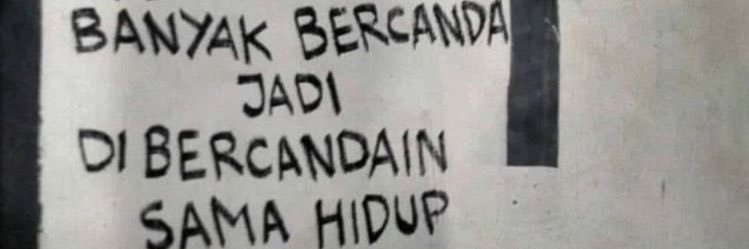 BANYAK BERCANDA
JADI
DI BERCANDAIN
SAMA HIDUP